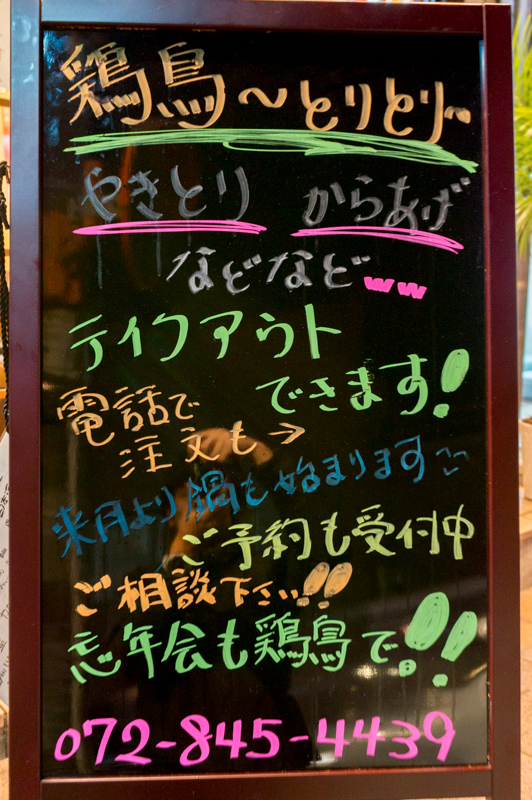 鶏鳥〜とりとり〜
やきとり からあげ
などなどww
テイクアウト
できます!
電話で
注文も→
来月より鍋も始まります
ご予約も受付中
ご相談下さい!!
忘年会も鶏鳥で!!
072-845-4439